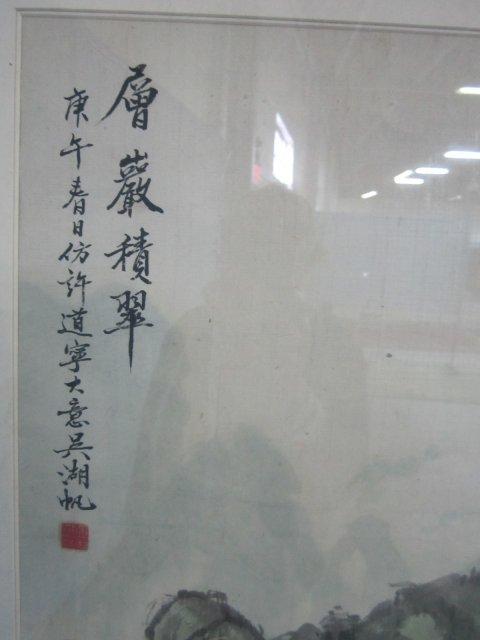 層巖積翠
庚午春日仿許道寧大意吳湖帆